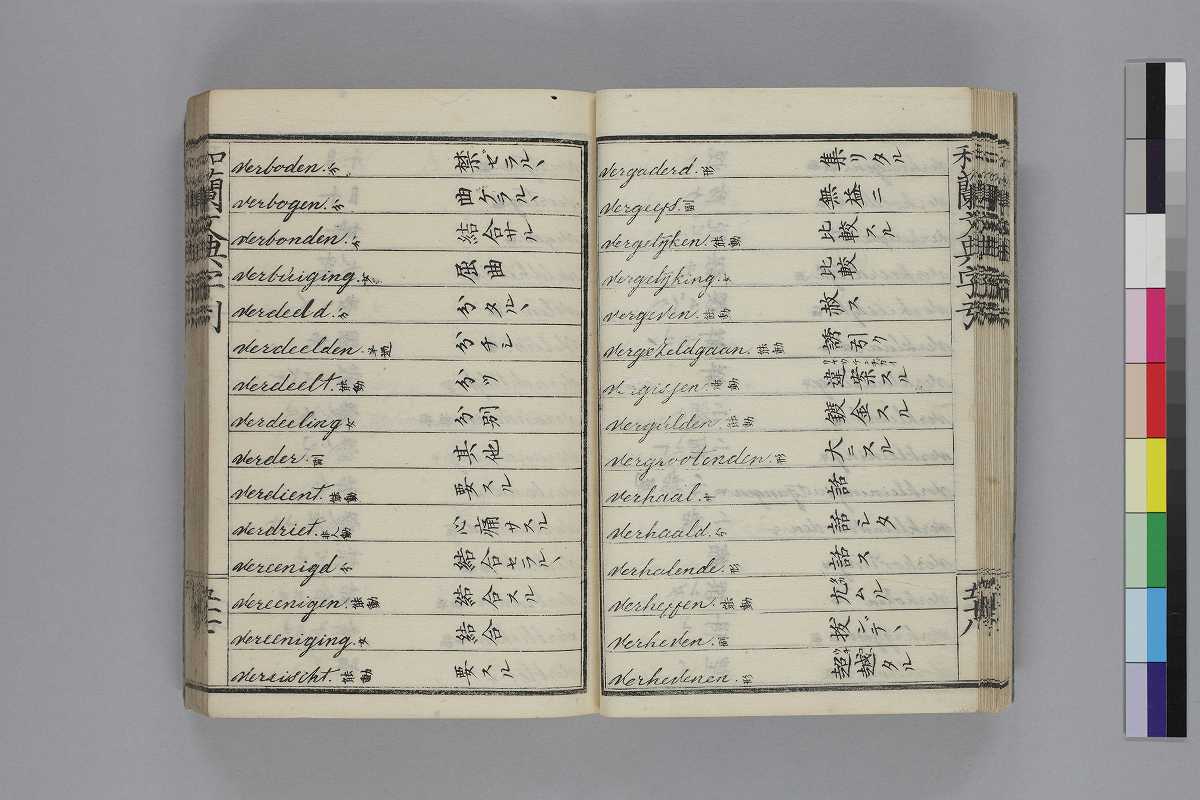 verboden. 分 禁ゼラル、
verbogen. 分 曲ケラル、
verbonden. 分 結合サル
verbuiging. 女 屈曲
verdeeld. 分 分タル、
verdeelden. 半過 分チシ
verdeelt. 能動 分ツ
verdeeling. 女 分別
verder. 副 其他
verdient. 能動 要スル
verdriet. 非人動 心痛サスル
vereenigd 分 結合セラル、
vereenigen. 能動 結合スル
vereeniging. 女 結合
vereischt. 能動 要スル
vergaderd. 形 集リタル
vergeefs. 副 無益ニ
vergelijken. 能動 比較スル
vergelijking. 女 比較
vergeven. 能動 赦ス
vergezeldgaan. 能動 誘引ク
vergissen. 能動 違案スル
vergulden. 能動 鍍金スル
vergrootenden. 形 大ニスル
verhaal. 中 話
verhaald. 分 話シタ
verhalende. 形 話ス
verheffen. 能動
verheven. 副 拔ンデテ、
verhevenen. 形 超越タル